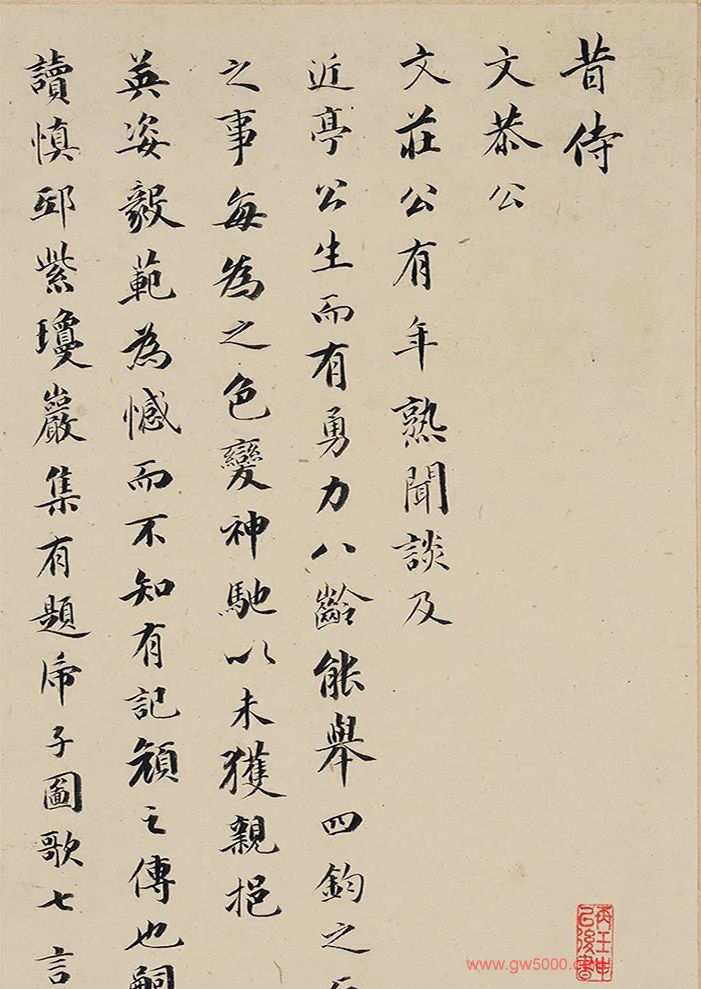 昔侍
文恭公
文莊公有年熟聞談及
近亭公生而有勇力八齡能舉四鈞之
之事每為之色變神馳以未獲親挹
英姿毅範為憾而不知有記之傳也嗣
讀慎邸紫瓊巖集有題乕子圖歌七言
再壬申
已後書
www.gw5000.c